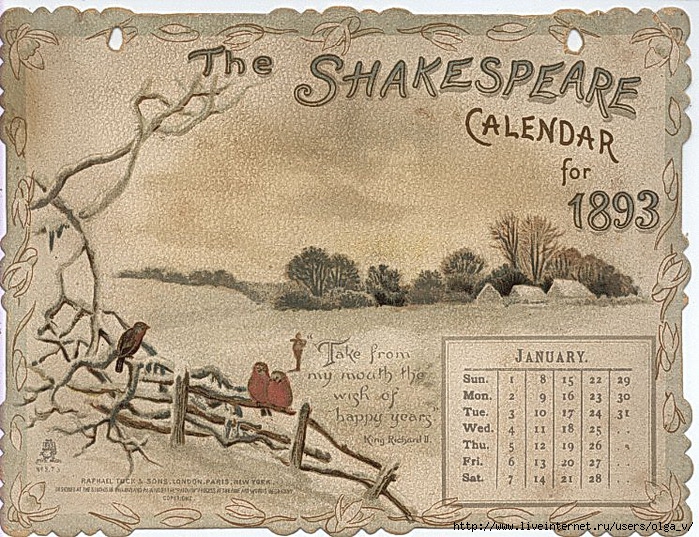 The SHAKESPEARE
CALENDAR
for
1893
"Take from
my mouth the
wish of
happy years"
King Richard II.
JANUARY.
Sun. 1 8 15 22 29
Mon. 2 9 16 23 30
Tue. 3 10 17 24 31
Wed. 4 11 18 25 ..
Thu. 5 12 19 26 ..
Fri. 6 13 20 27 ..
Sat. 7 14 21 28 ..
RAPHAEL TUCK & SONS. LONDON. PARIS. NEW YORK.
COPYRIGHT
http://www.liveinternet.ru/users/olga_v/